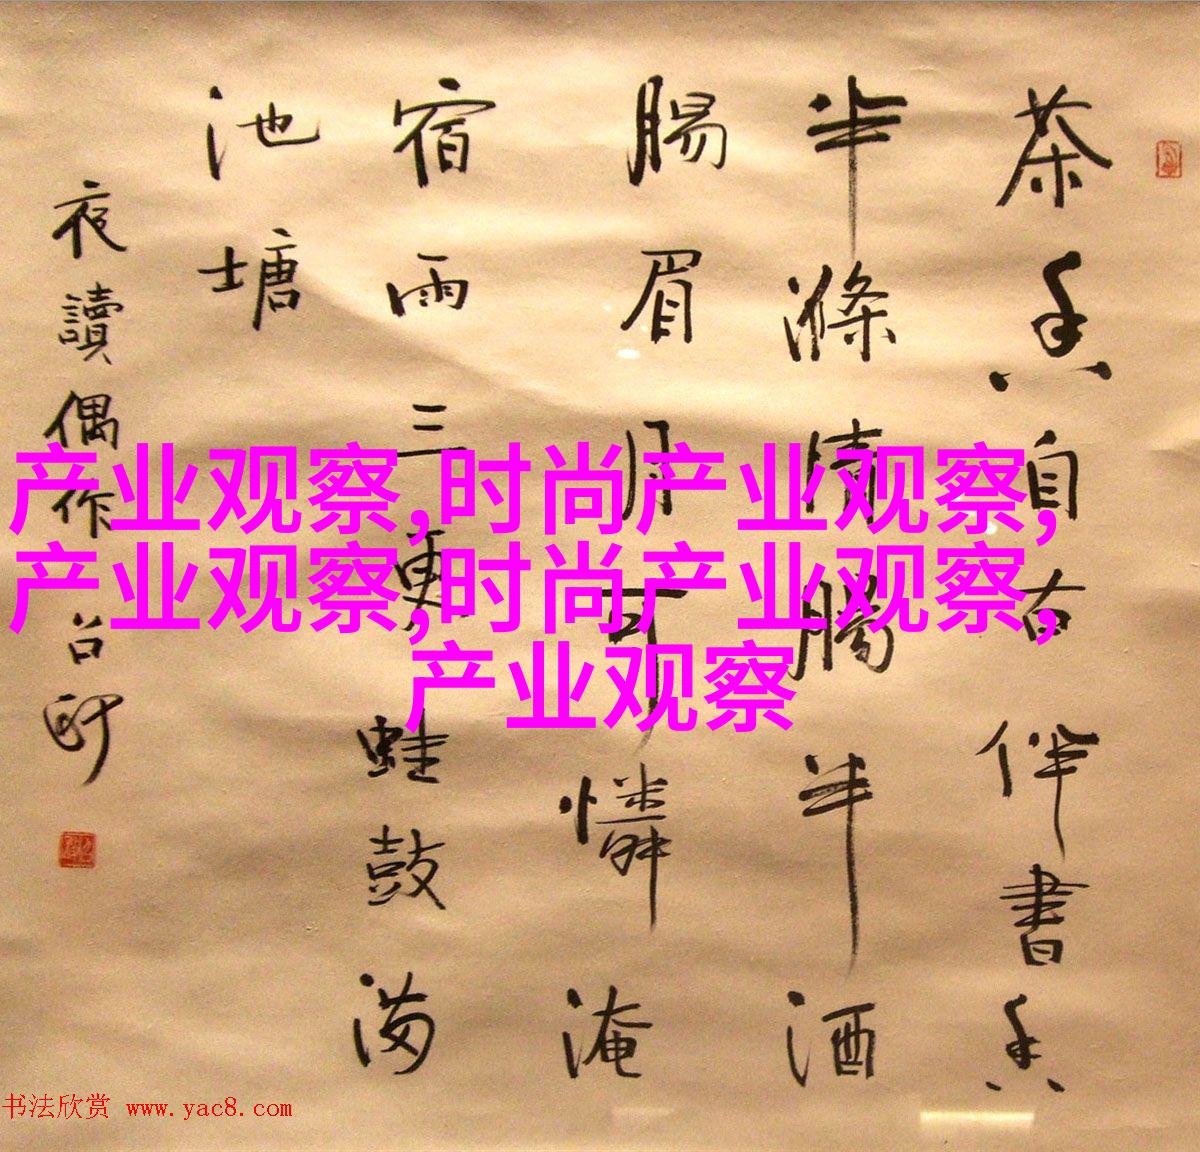 茶香自古伴書香
半滌情腸半酒
腸眉月可憐淹
宿雨三更蛙鼓满
池塘
夜讀偶作
产业观察,时尚产业观察,
产业观察,时尚产业观察,
产业观察
书法欣赏 www.yac8.com